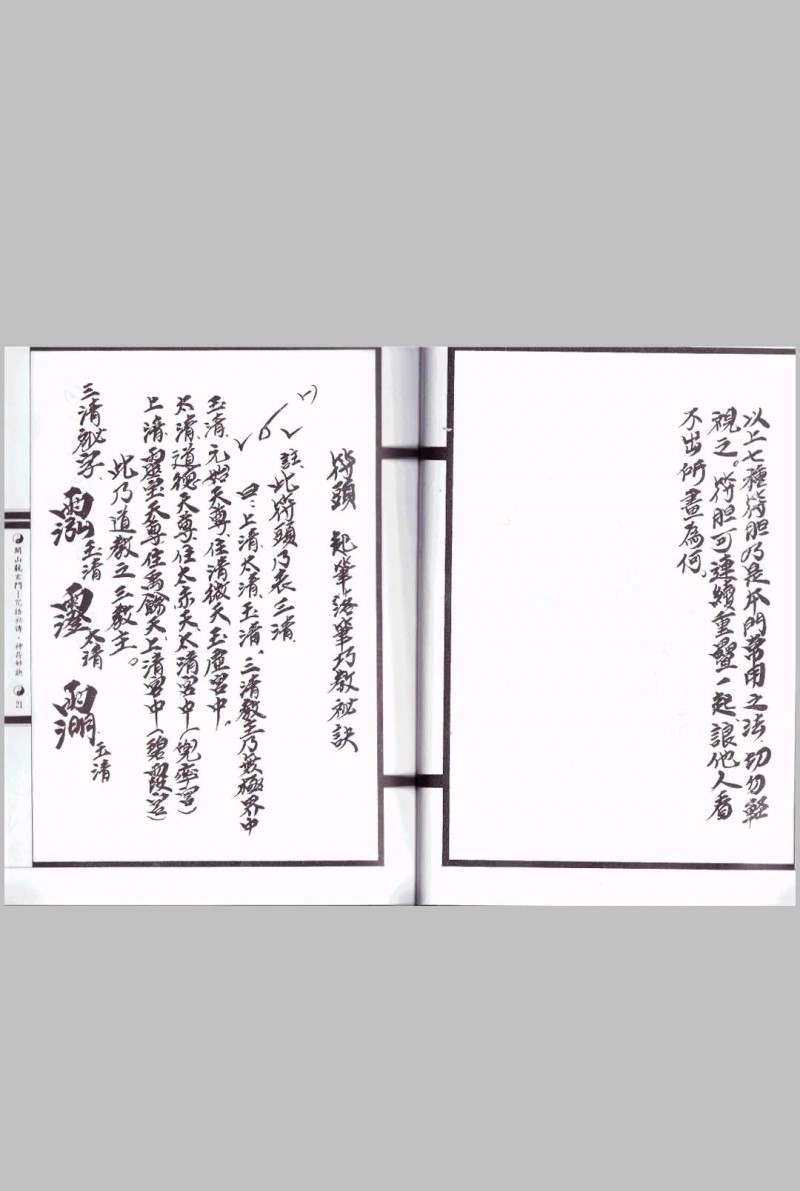 以上七種符胆乃是本門常用之法、切勿輕
視之。符胆可連續重疊一起、讓他人看
不出所畫為何。
符頭 起筆落筆巧教秘訣
㈠
註、此符頭乃表三清、
曰、上清、太清、玉清、三清教主乃無極界中
玉清、元始天尊、住清微天玉虛宮中。
太清、道德天尊住太赤天太清宮中(兜率宮)
上清、靈寶天尊住禹餘天、上清宮中(碧霞宮)
此乃道教之三教主。
三清秘字、
玉清
太清
玉清
閭山
門
神符
21